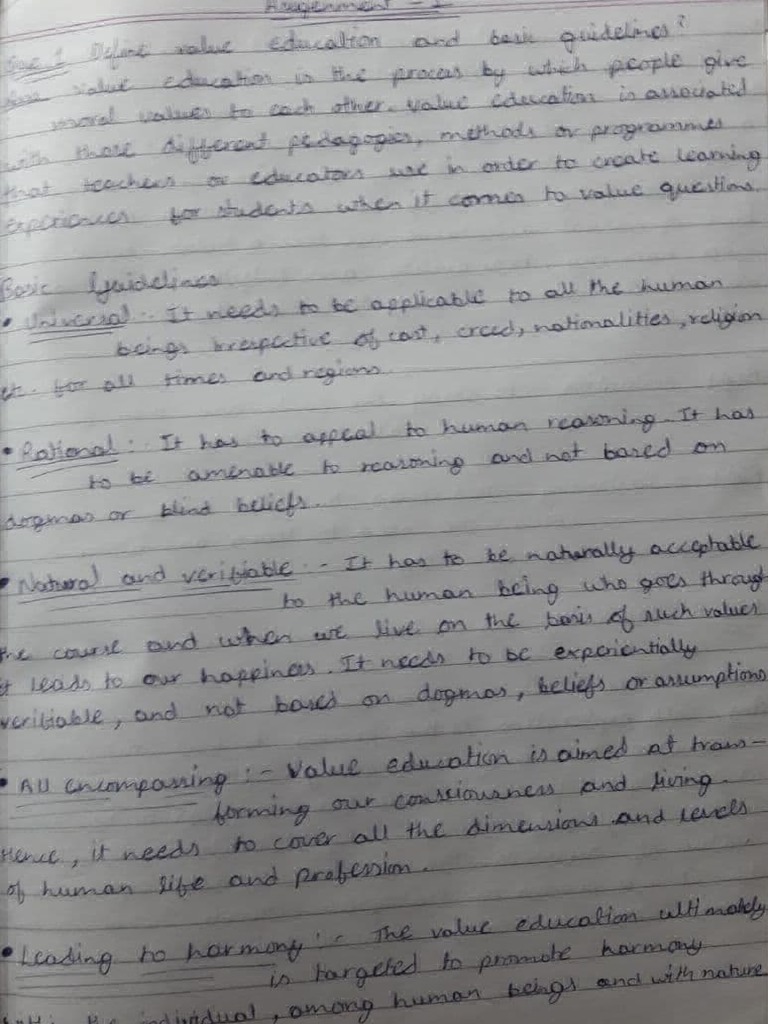 Assignment - 1
Que 1 Define value education and basic guidelines?
Ans value education is the process by which people give
moral values to each other. Value education is associated
with those different pedagogies, methods or programmes
that teachers or educators use in order to create learning
experiences for students when it comes to value questions.
Basic Guidelines
• Universal :- It needs to be applicable to all the human
beings irrespective of cast, creed, nationalities, religion
etc. for all times and regions.
• Rational :- It has to appeal to human reasoning. It has
to be amenable to reasoning and not based on
dogmas or blind beliefs.
• Natural and verifiable :- It has to be naturally acceptable
to the human being who goes through
the course and when we live on the basis of such values
it leads to our happiness. It needs to be experientially
verifiable, and not based on dogmas, beliefs or assumptions
• All encompassing :- Value education is aimed at trans-
forming our consciousness and living.
Hence, it needs to cover all the dimensions and levels
of human life and profession.
• Leading to harmony :- The value education ultimately
is targeted to promote harmony
individual, among human beings and with nature